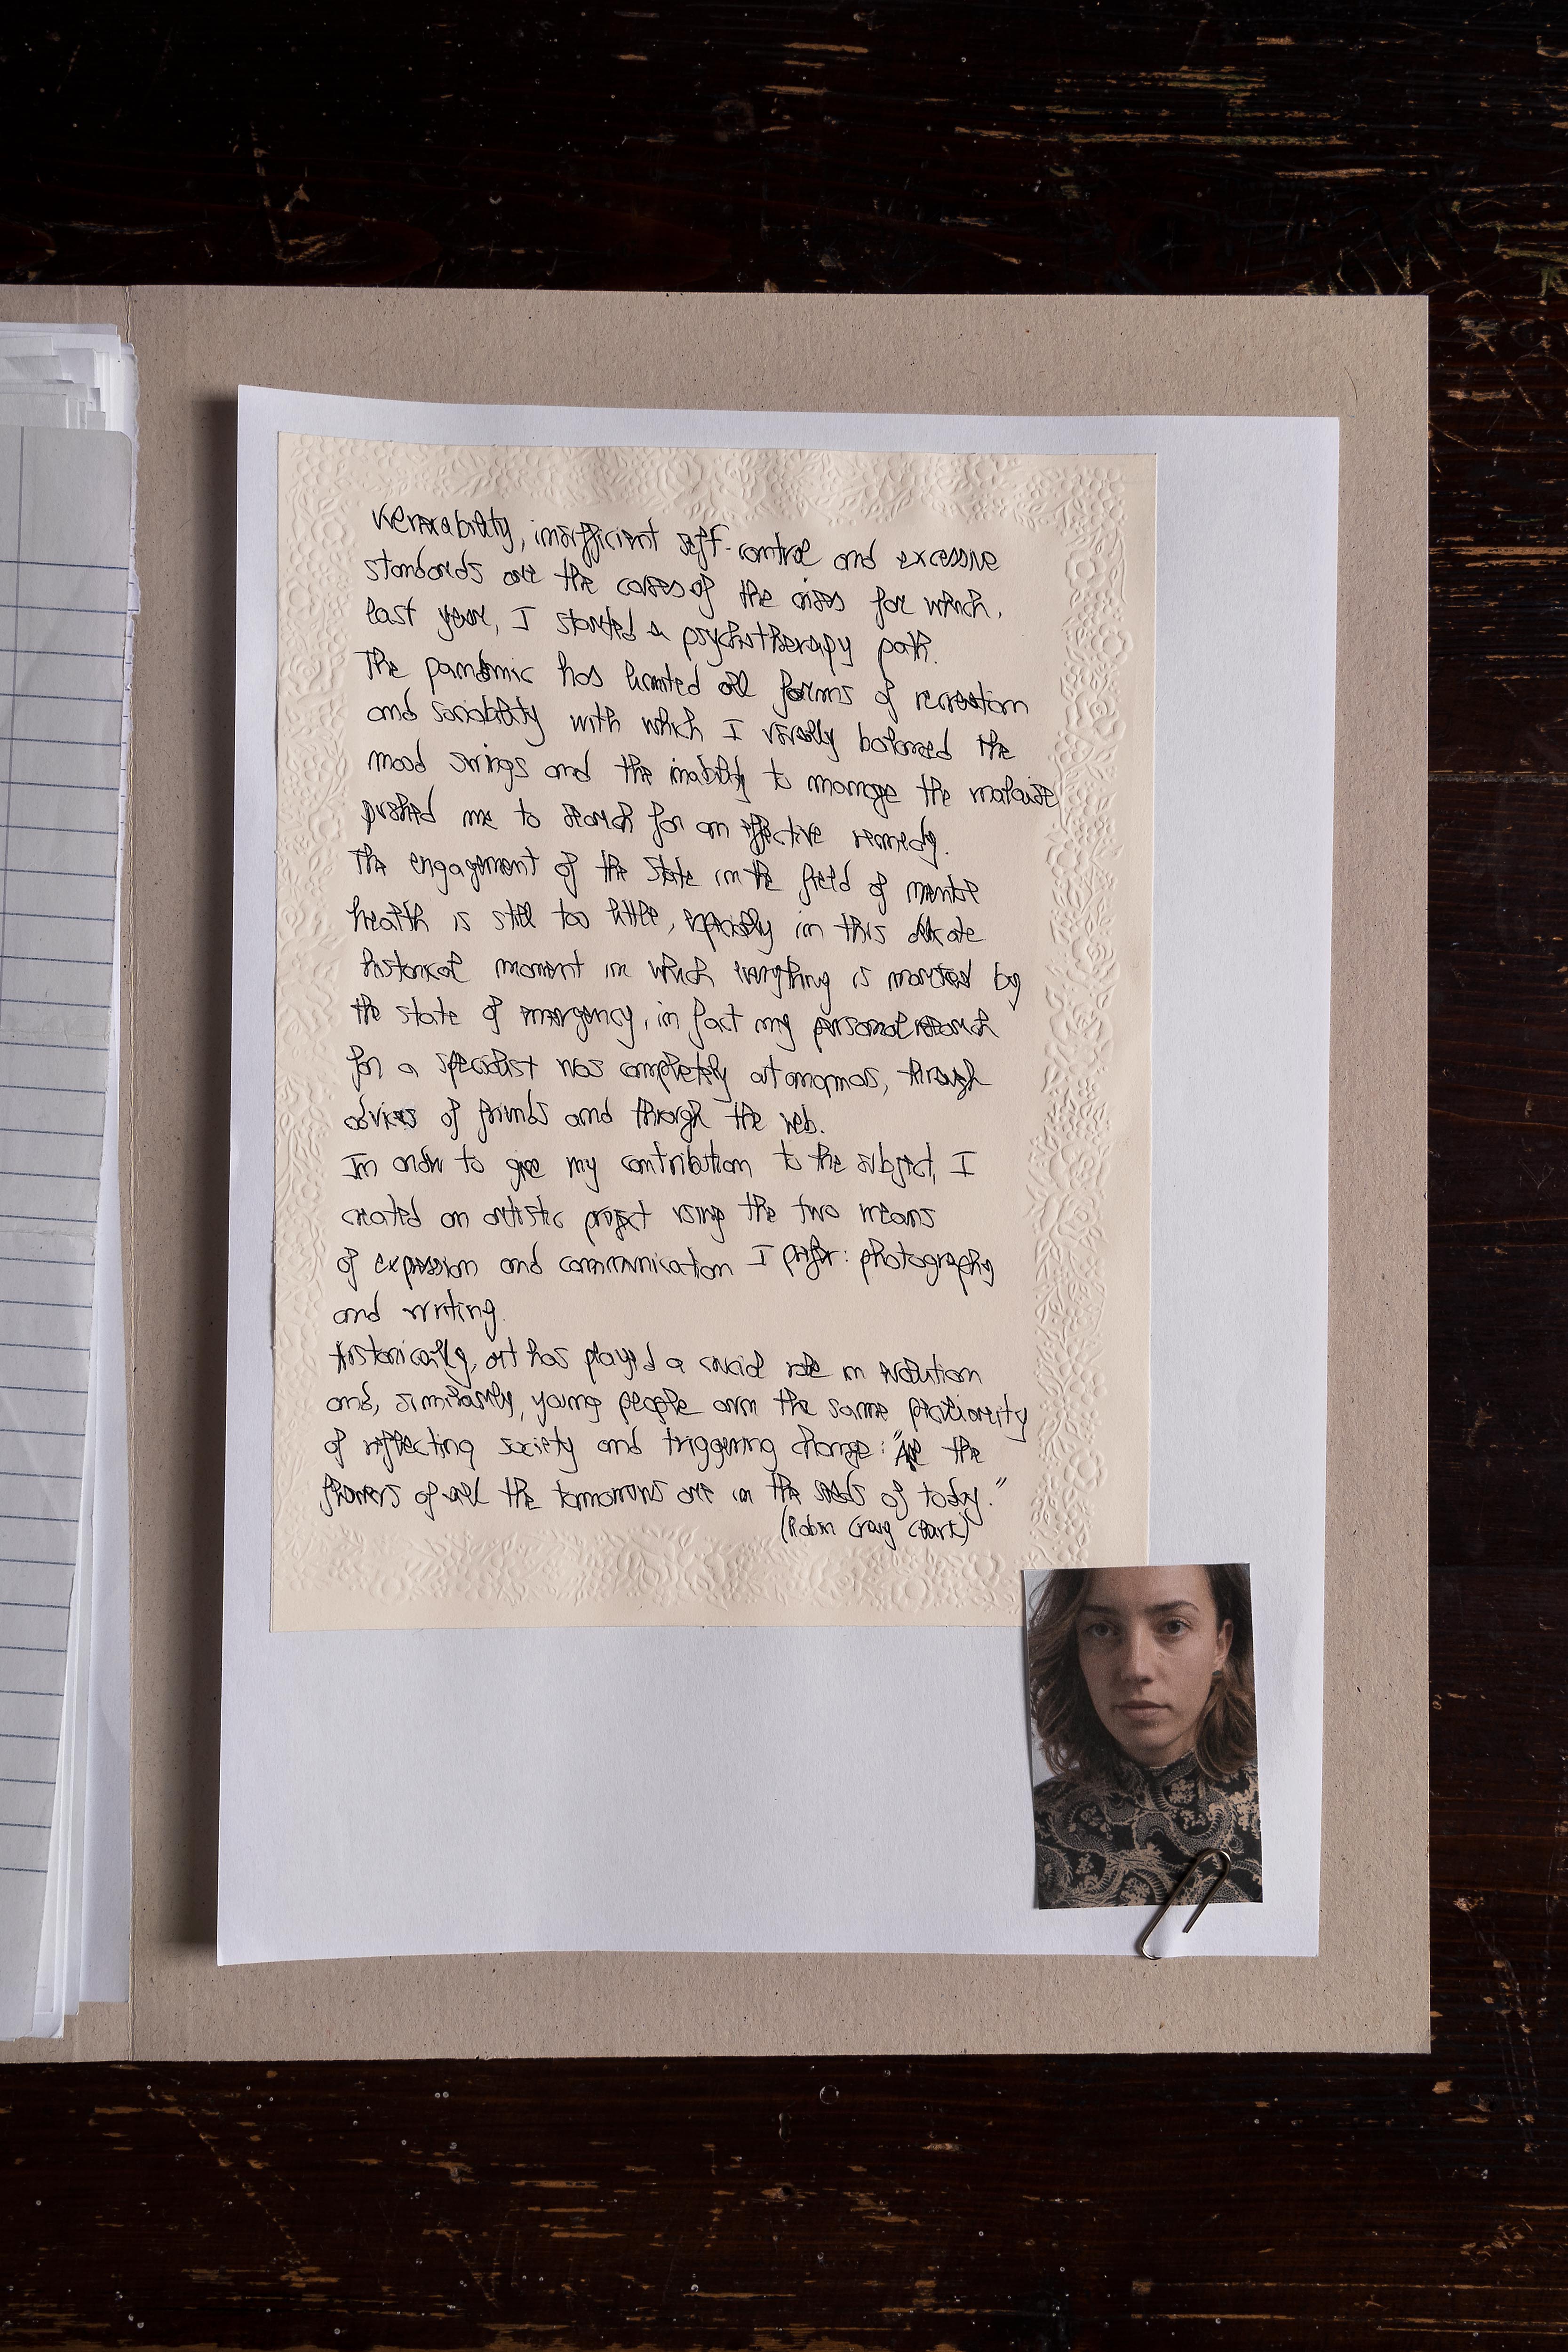 Vulnerability, insufficient self-control and excessive
standards are the causes of the crises for which,
last year, I started a psychotherapy path.
The pandemic has limited all forms of recreation
and sociability with which I usually balanced the
mood swings and the inability to manage the malaise
pushed me to search for an effective remedy.
The engagement of the State in the field of mental
health is still too little, especially in this delicate
historical moment in which everything is marked by
the state of emergency, in fact my personal research
for a specialist was completely autonomous, through
advices of friends and through the web.
In order to give my contribution to the subject, I
created an artistic project using the two means
of expression and communication I prefer: photography
and writing.
Historically, art has played a crucial role in evolution
and, similarly, young people own the same peculiarity
of reflecting society and triggering change: "All the
flowers of all the tomorrows are in the seeds of today."
(Robin Craig Clark)